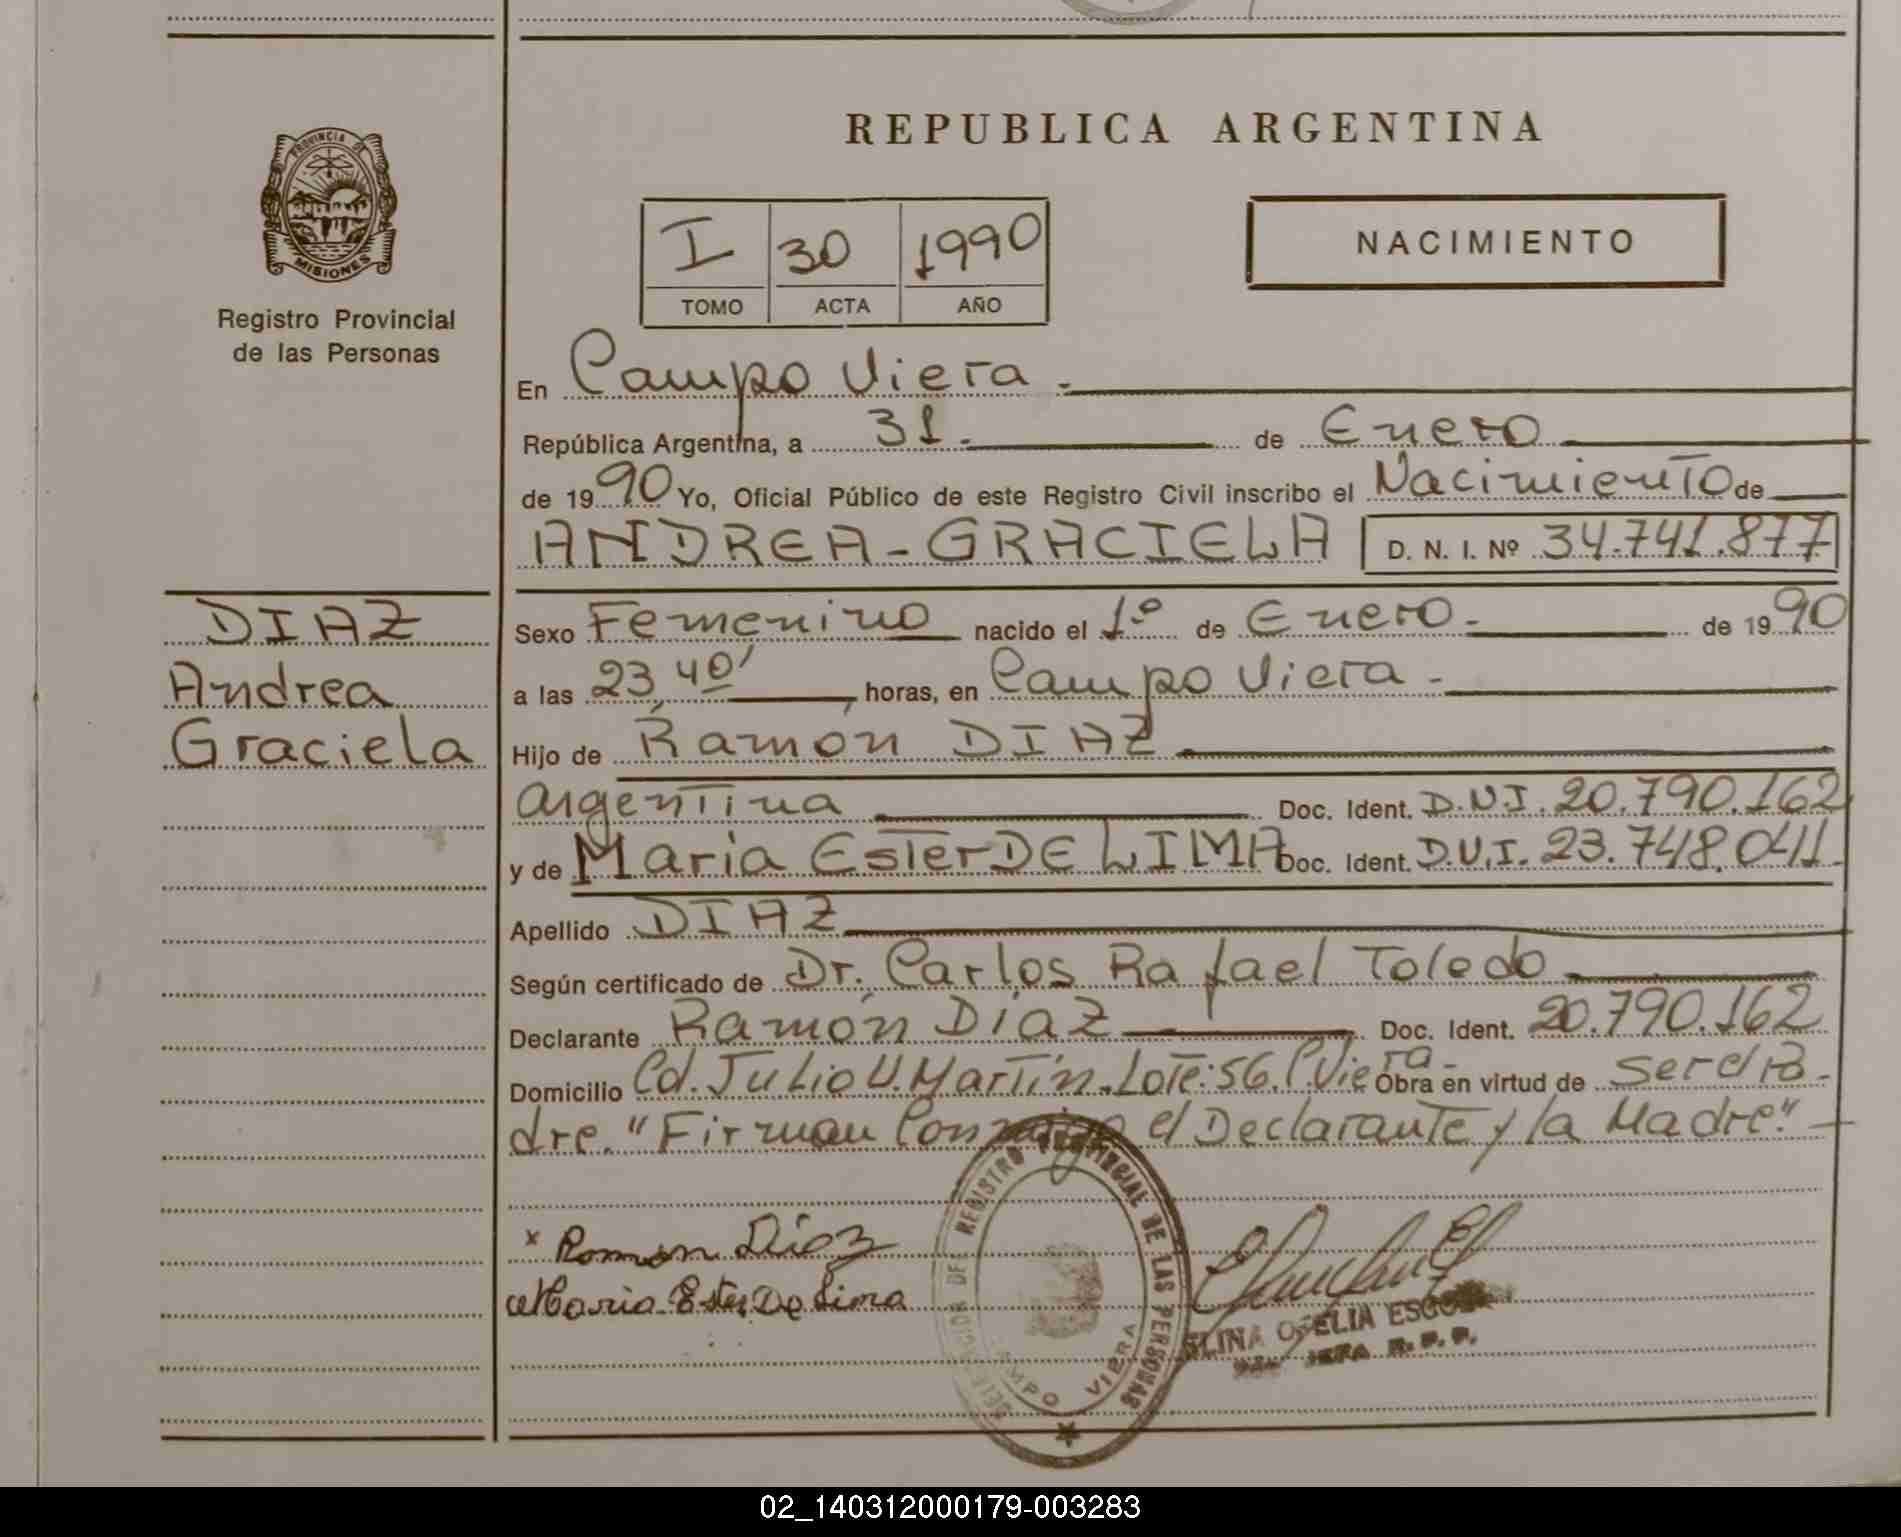 REPUBLICA ARGENTINA
PROVINCIA DE
MISIONES
Registro Provincial
de las Personas
I 30 1990
TOMO ACTA AÑO
NACIMIENTO
En Campo Viera.-
República Argentina, a 31.- de Enero
de 1990 Yo, Oficial Público de este Registro Civil inscribo el Nacimiento de
ANDREA-GRACIELA D. N. I. Nº 34.741.877
DIAZ
Andrea
Graciela
Sexo Femenino nacido el 1º de Enero.- de 1990
a las 23,40' horas, en Campo Viera.-
Hijo de Ramón DIAZ
argentina Doc. Ident. D.N.I. 20.790.162
y de María Ester DE LIMA Doc. Ident. D.N.I. 23.748.041.
Apellido DIAZ
Según certificado de Dr. Carlos Rafael Toledo
Declarante Ramón Díaz Doc. Ident. 20.790.162
Domicilio Cd. Julio U. Martín. Lote: 56. C. Viera.- Obra en virtud de ser el Pa-
dre. "Firman Conmigo el Declarante y la Madre".-
x Ramon Díaz
Maria Ester De Lima
REGISTRO PROVINCIAL DE LAS PERSONAS
CAMPO VIERA
OFELIA
JEFA R. P. P.
02_140312000179-003283